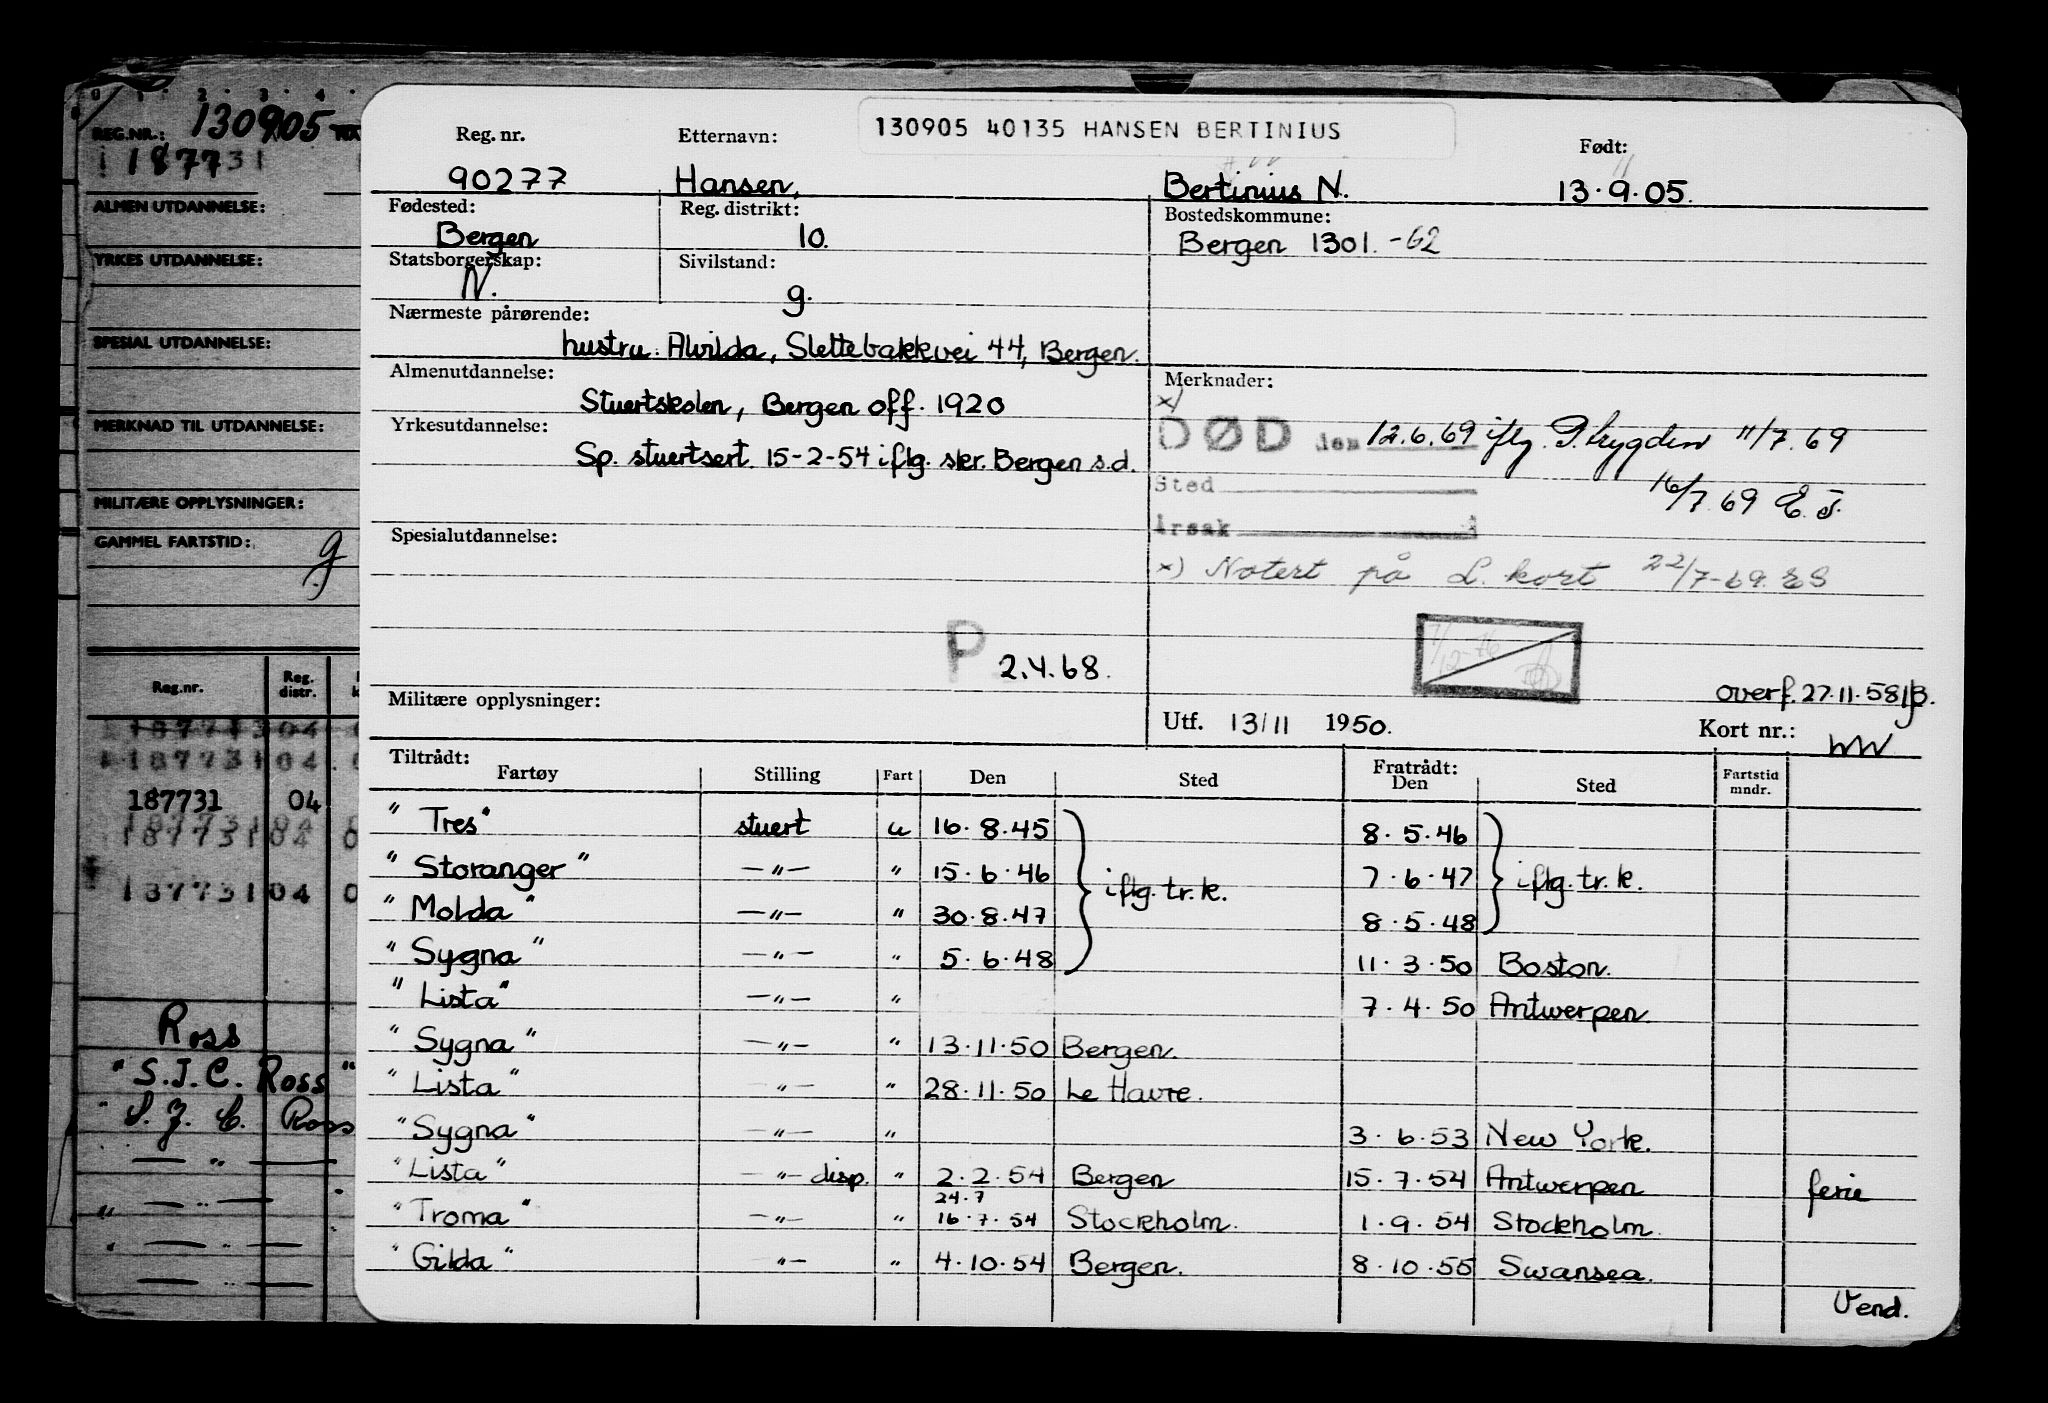 0 1 2 3 4
REG.NR.: 130905
187731
ALMEN UTDANNELSE:
YRKES UTDANNELSE:
SPESIAL UTDANNELSE:
MERKNAD TIL UTDANNELSE:
MILITÆRE OPPLYSNINGER:
GAMMEL FARTSTID: g
Reg.nr. Reg. distr.
187731 04
187731 04
187731 04
187731 04 0
187731 04 0
Ross
"S.J.C. Ross"
"S. J. C. Ross
— " —
" — " —
" — " —
" — " —
130905 40135 HANSEN BERTINIUS
Reg. nr. Etternavn: Født:
90277 Hansen, Bertinius N. 13.9.05.
Fødested: Reg. distrikt: Bostedskommune:
Bergen 10. Bergen 1301.-62
Statsborgerskap: Sivilstand:
N. g.
Nærmeste pårørende:
hustru: Alvilda, Slettebakkvei 44, Bergen.
Almenutdannelse: Merknader:
Stuertskolen, Bergen off. 1920
x)
DØD den 12.6.69 iflg. P.trygden 11/7.69
Yrkesutdannelse:
Sp. stuertsert. 15-2-54 iflg. skr. Bergen s.d.
Sted 16/7.69 E.J.
Årsak
Spesialutdannelse:
x) Notert på L. kort 22/7-69. ES
P 2.4.68.
7/12-76
Militære opplysninger: overf. 27.11.58/B.
Utf. 13/11 1950. Kort nr.: WW
Tiltrådt: Fartøy Stilling Fart Den Sted Fratrådt: Den Sted Fartstid mndr.
"Tres" stuert u 16.8.45 8.5.46
"Storanger" —"— " 15.6.46 iflg. tr. k. 7.6.47 iflg. tr. k.
"Molda" —"— " 30.8.47 8.5.48
"Sygna" —"— " 5.6.48 11.3.50 Boston.
"Lista" —"— " 7.4.50 Antwerpen.
"Sygna" —"— " 13.11.50 Bergen.
"Lista" —"— " 28.11.50 Le Havre.
"Sygna" —"— " 3.6.53 New York.
"Lista" —"— disp. " 2.2.54 Bergen 15.7.54 Antwerpen ferie
24.7
"Troma" —"— " 16.7.54 Stockholm. 1.9.54 Stockholm.
"Gilda" "— " 4.10.54 Bergen. 8.10.55 Swansea.
Vend.